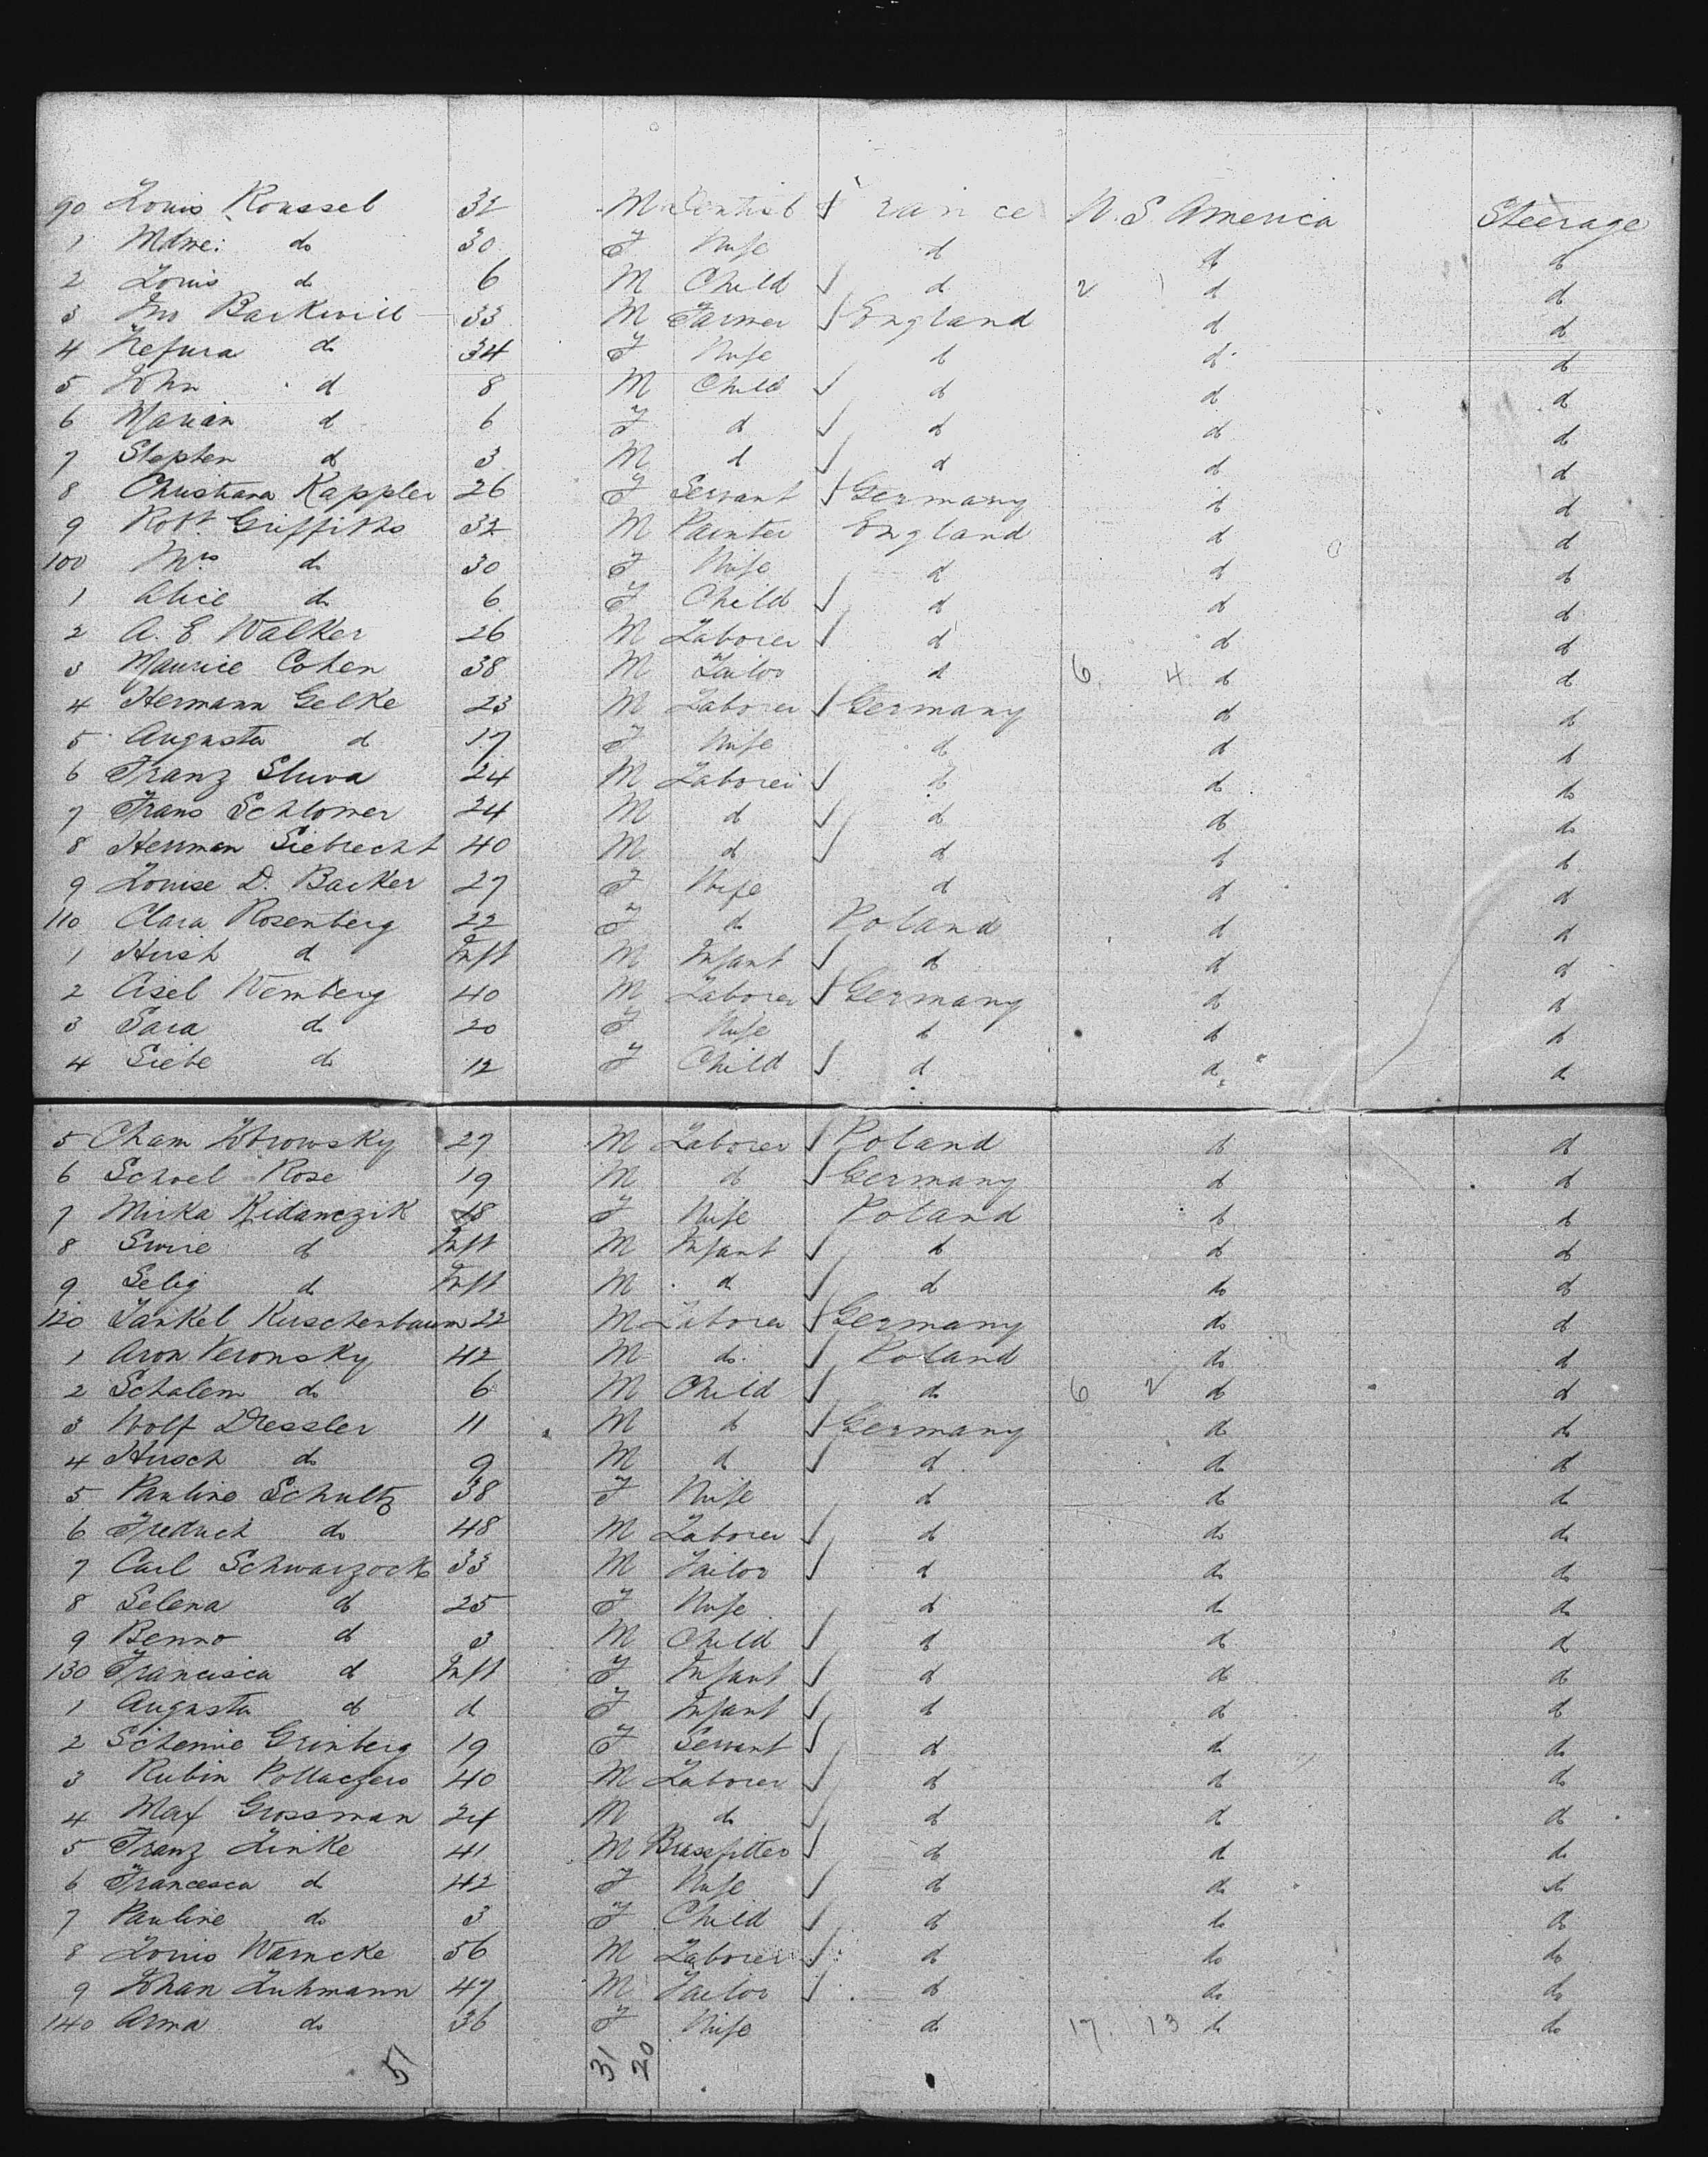 90 Louis Roussel 32 M Dentist France U.S. America Steerage
1 Mdme: do 30 F Wife d d d
2 Louis do 6 M Child d 2 1 d d
3 Jno Barkwill 33 M Farmer England d d
4 do 34 F Wife d d d
5 John d 8 M Child d d d
6 Marian d 6 F d d d d
7 Stephen d 3 M d d d d
8 Christiana Kappler 26 F Servant Germany d d
9 Robt. Griffiths 32 M Painter England d d
100 Mrs do 30 F Wife d d d
1 Alice do 6 F Child d d d
2 A. E Walker 26 M Laborer d d d
3 Maurice Cohen 38 M Tailor d 6. 4 d d
4 Hermann Gelke 23 M Laborer Germany d d
5 Augusta d 17 F Wife d d d
6 Franz Sluva 24 M Laborer d d do
7 Frans Schlomer 24 M d d d do
8 Herrman Siebrecht 40 M d d d d
9 Louise D. Backer 27 F Wife d d d
110 Clara Rosenberg 22 F do Poland d d
1 Hirsh d Inft M Infant d d d
2 Cisel Wemberg 40 M Laborer Germany d d
3 Sara do 20 F Wife d d d
4 Siebe do 12 F Child d d d
5 Cham 27 M Laborer Poland d d
6 Schoel Rose 19 M d Germany d d
7 Mirka Kidanczik 28 F Wife Poland d d
8 d Inft M Infant d d d
9 Selig d Inft M d d do d
120 Jankel Kirschenbaum 22 M Laborer Germany do d
1 Aron Veronsky 42 M do Poland do d
2 Schalem do 6 M Child d 6 2 d d
3 Wolf Dressler 11 M d Germany d do
4 Hirsch do 9 M d d do d
5 Pauline Schultz 38 F Wife d d d
6 Fredrich do 48 M Laborer d do do
7 Carl Schwarzock 33 M Tailor d do do
8 Selena d 25 F Wife d do do
9 Benno d 3 M Child d d d
130 Francisca d Inft F Infant d d d
1 Augusta d d F Infant d d d
2 Schemie Grinberg 19 F Servant d d do
3 Rubin 40 M Laborer d d do
4 Max Grossman 24 M do d d do
5 Franz Linke 41 M Brassfitter d d do
6 Francesca d 42 F Wife d do do
7 Pauline do 3 F Child d do do
8 Louis Warncke 56 M Laborer d do do
9 Johan Luhmann 47 M Tailor d do do
140 Anna do 36 F Wife d 17. 13 do do
51 31 20